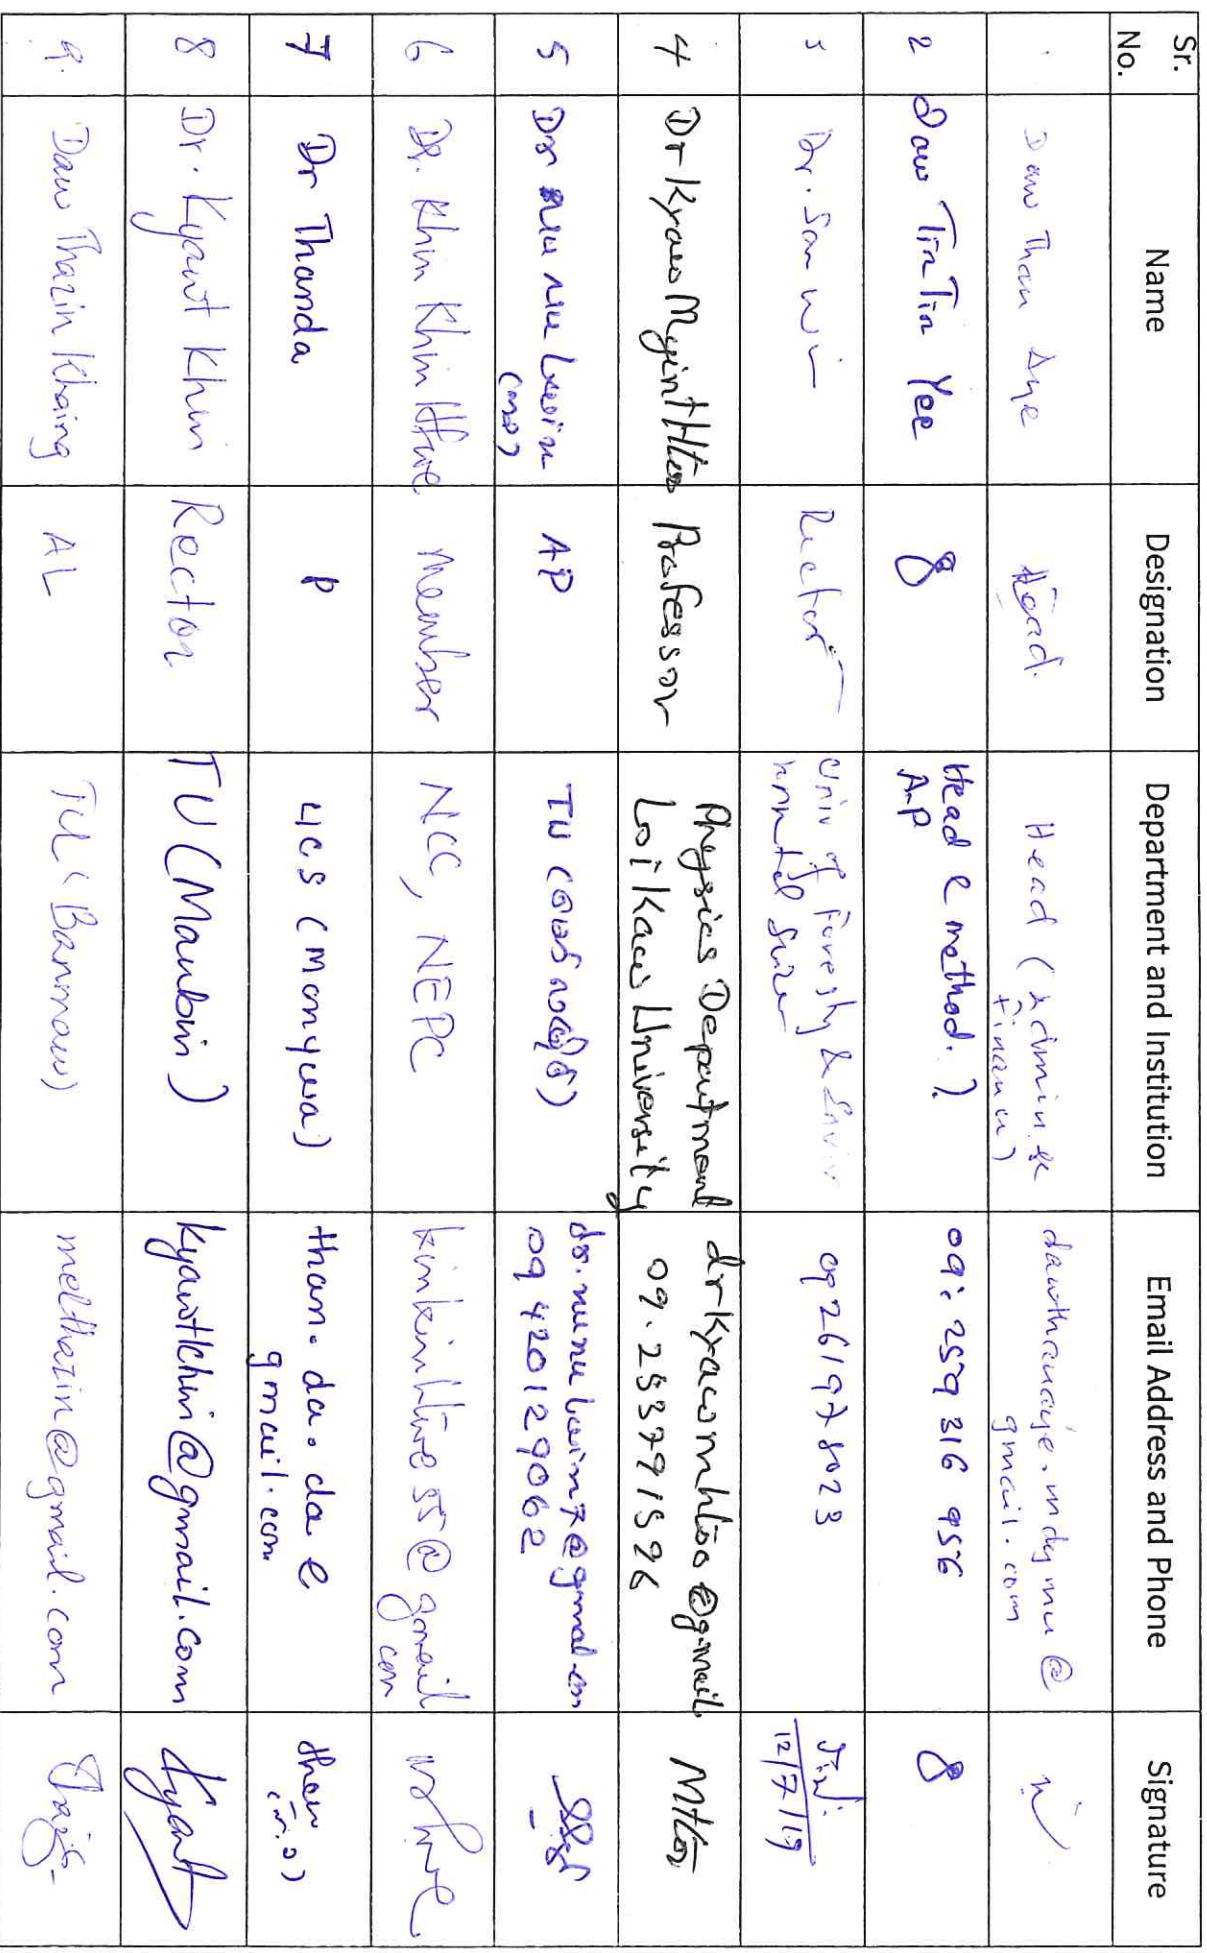 Sr. No. Name Designation Department and Institution Email Address and Phone Signature
Daw Than Aye Head. Head (Admin & Finance) dawthanaye.mdymu@gmail.com
2 Daw Tin Tin Yee Head e method. ? AP 09:259 316 956
3 Dr. San Win Rector Univ of Forestry & 09261978023 12/7/19
4 Dr Kyaw Myint Htoo Professor Physics Department Loikaw University drkyacomhtoo@gmail. 09.253791526
5 Dr Nu Nu Lwin AP TU dr.nunulwin7@gmal.com 09 420129062
6 Dr. Khin Khin Htwe Member NCC, NEPC kinkinhtwe55@gmail com
7 Dr Thanda P UCS (Monywa) than.da.da e gmail.com
8 Dr. Kyawt Khin Rector TU (Maubin) kyawtkhin@gmail.com
9. Daw Thazin Khaing AL TU (Banmaw) melthazin@gmail.com